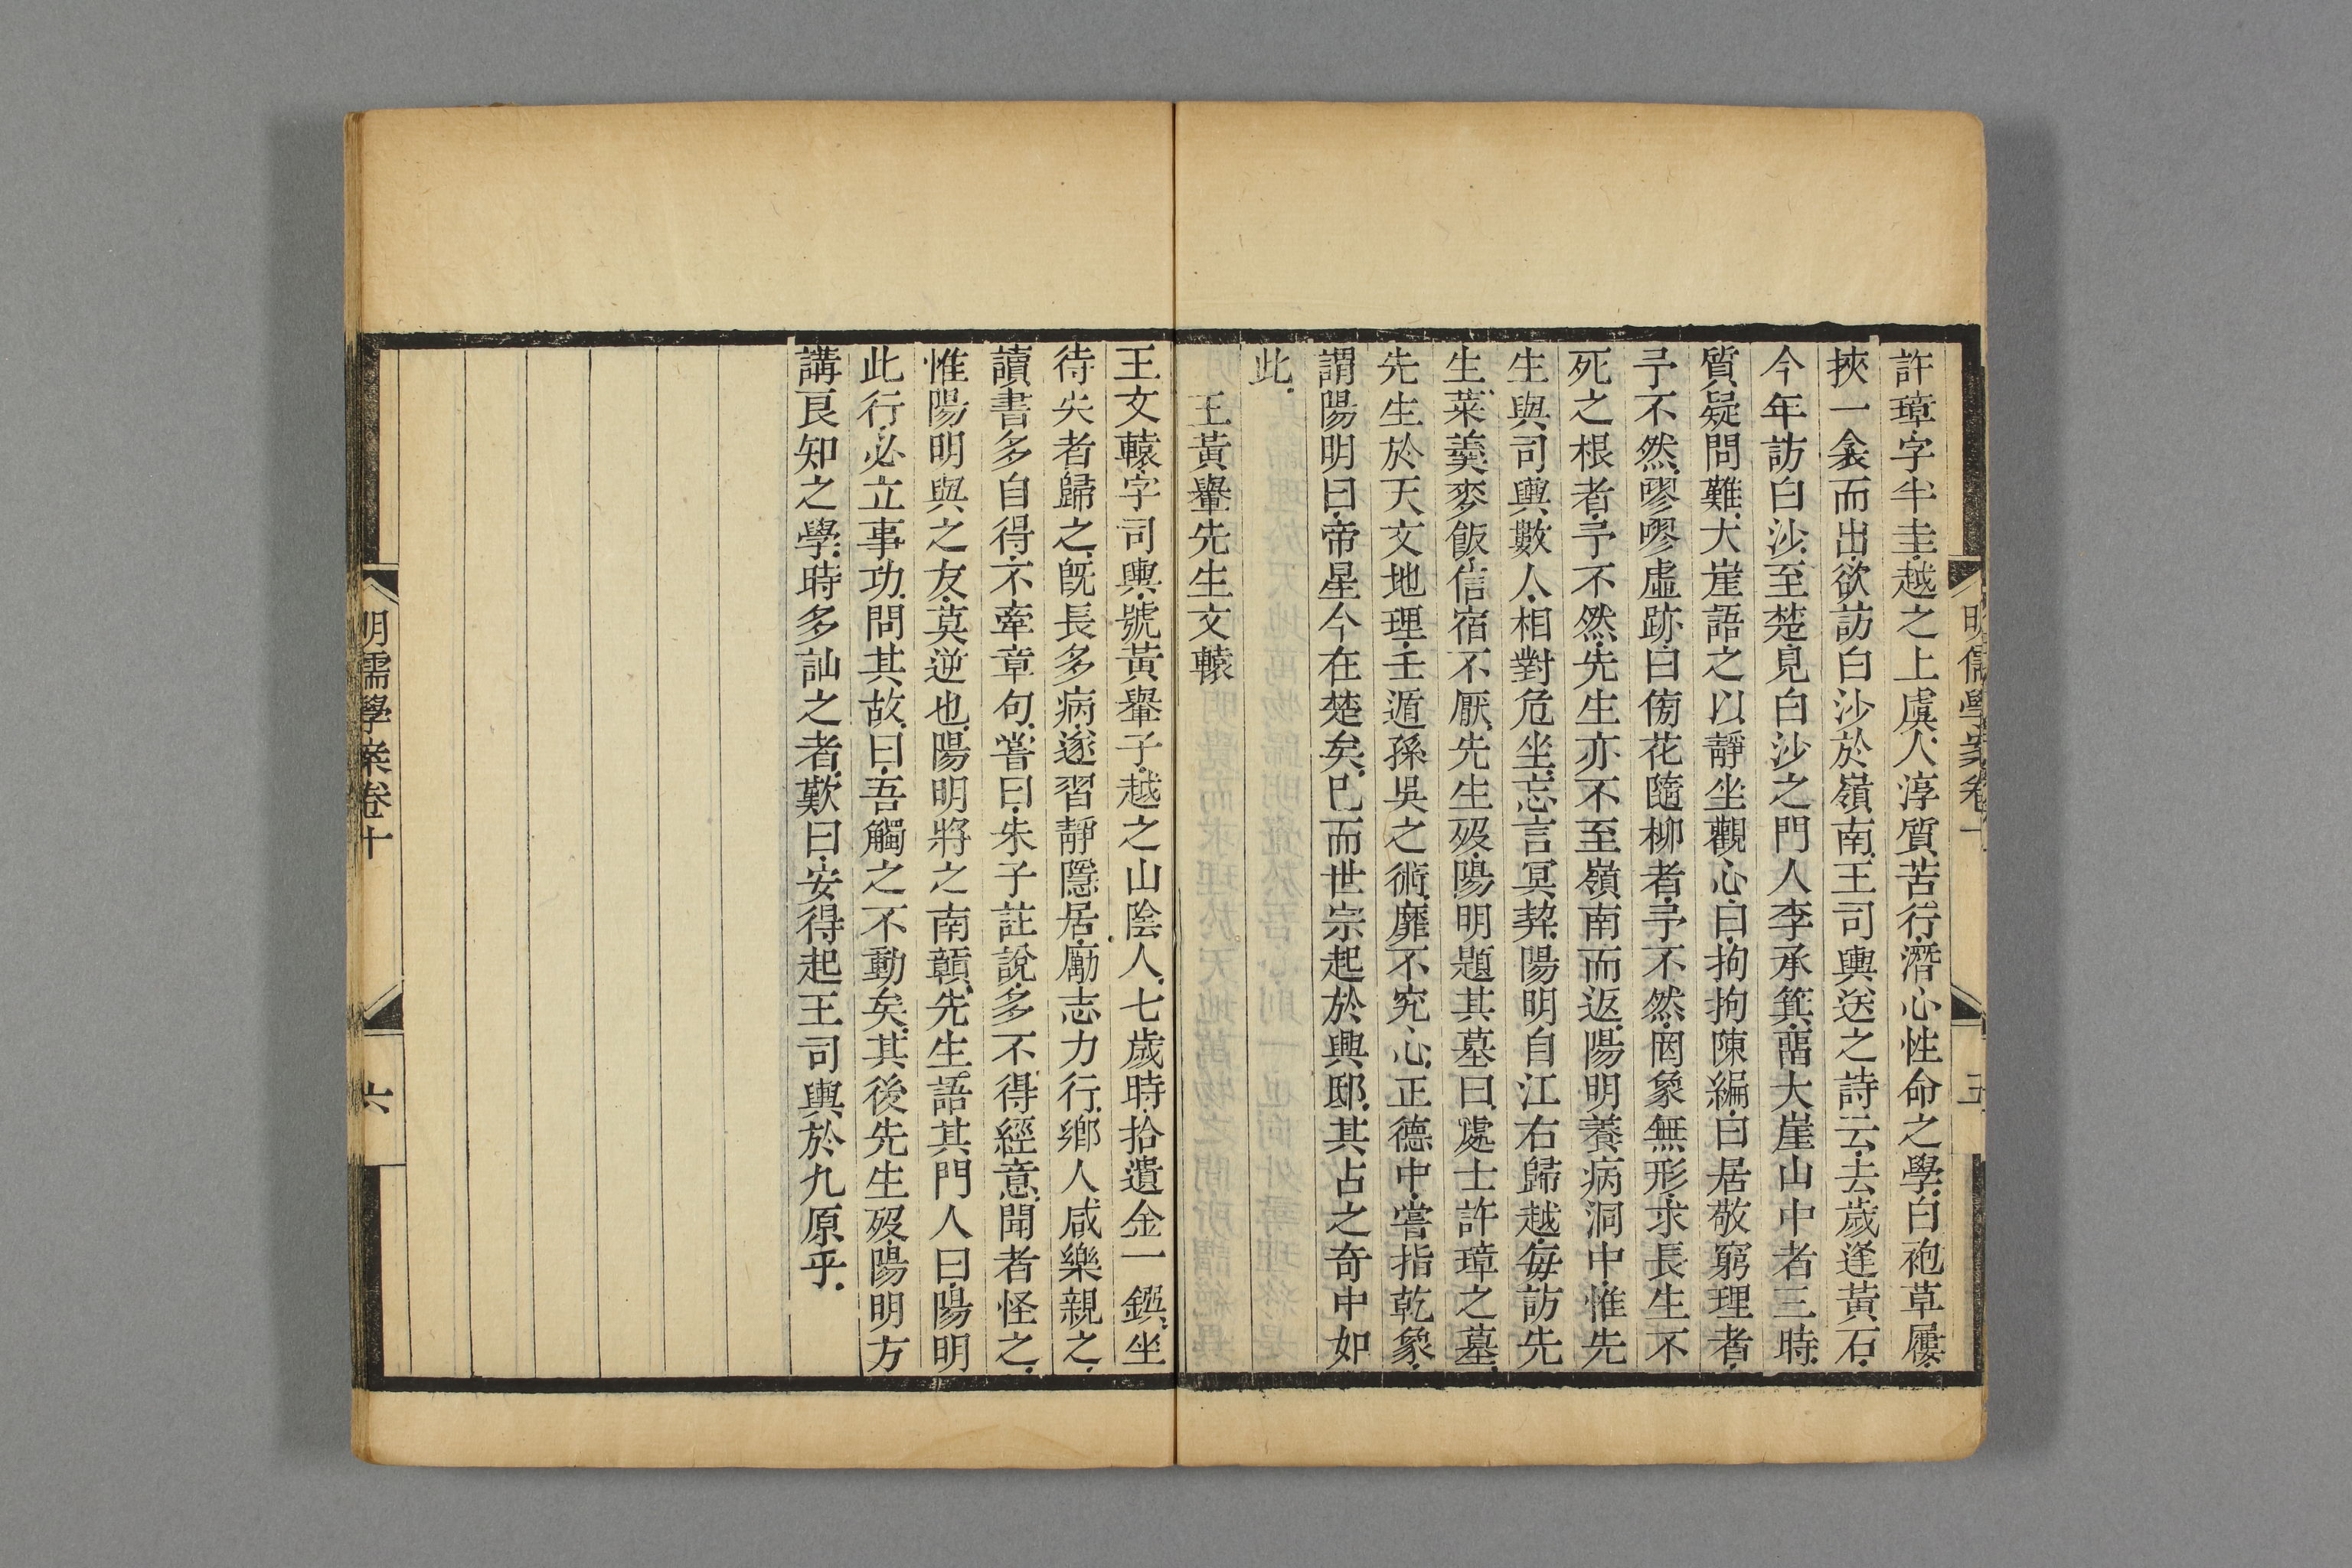 許璋字半圭越之上虞人淳質苦行潛心性命之學白袍草屨
挾一衾而出欲訪白沙於嶺南王司輿送之詩云去歲逢黃石
今年訪白沙至楚見白沙之門人李承箕畱大崖山中者三時
質疑問難大崖語之以靜坐觀心曰拘拘陳編曰居敬窮理者
予不然嘐嘐虛跡曰傍花隨柳者予不然罔象無形求長生不
死之根者予不然先生亦不至嶺南而返陽明養病洞中惟先
生與司輿數人相對危坐忘言冥契陽明自江右歸越每訪先
生菜羹麥飯信宿不厭先生歿陽明題其墓曰處士許璋之墓
先生於天文地理壬遁孫吳之術靡不究心正德中嘗指乾象
謂陽明曰帝星今在楚矣已而世宗起於興邸其占之奇中如
此
王黃轝先生文轅
明儒學案卷十
五
王文轅字司輿號黃轝子越之山陰人七歲時拾遺金一鐶坐
待失者歸之旣長多病遂習靜隱居勵志力行鄉人咸樂親之
讀書多自得不牽章句嘗曰朱子註說多不得經意聞者怪之
惟陽明與之友莫逆也陽明將之南贛先生語其門人曰陽明
此行必立事功問其故曰吾觸之不動矣其後先生歿陽明方
講良知之學時多訕之者歎曰安得起王司輿於九原乎
明儒學案卷十
六